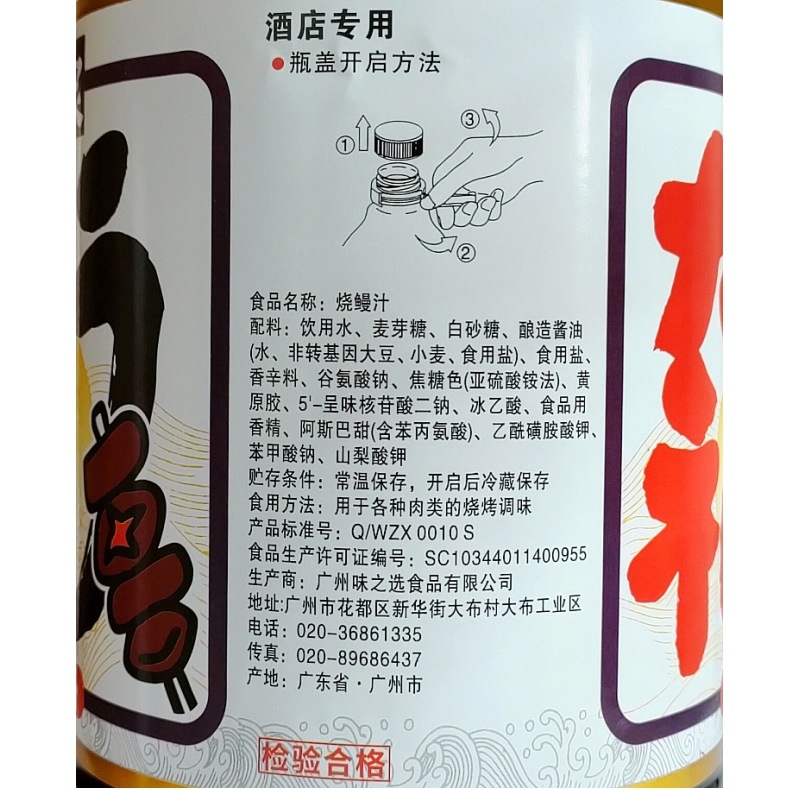 酒店专用
●瓶盖开启方法
① ③
②
食品名称：烧鳗汁
配料：饮用水、麦芽糖、白砂糖、酿造酱油
(水、非转基因大豆、小麦、食用盐)、食用盐、
香辛料、谷氨酸钠、焦糖色(亚硫酸铵法)、黄
原胶、5'-呈味核苷酸二钠、冰乙酸、食品用
香精、阿斯巴甜(含苯丙氨酸)、乙酰磺胺酸钾、
苯甲酸钠、山梨酸钾
贮存条件：常温保存，开启后冷藏保存
食用方法：用于各种肉类的烧烤调味
产品标准号：Q/WZX 0010 S
食品生产许可证编号：SC10344011400955
生产商：广州味之选食品有限公司
地址:广州市花都区新华街大布村大布工业区
电话：020-36861335
传真：020-89686437
产地：广东省·广州市
检验合格